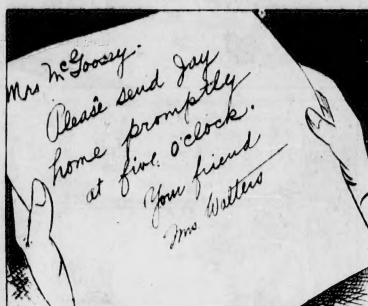 Mrs McGoosey.
Please send Jay
home promptly
at five o'clock.
Your friend
Mrs Walters